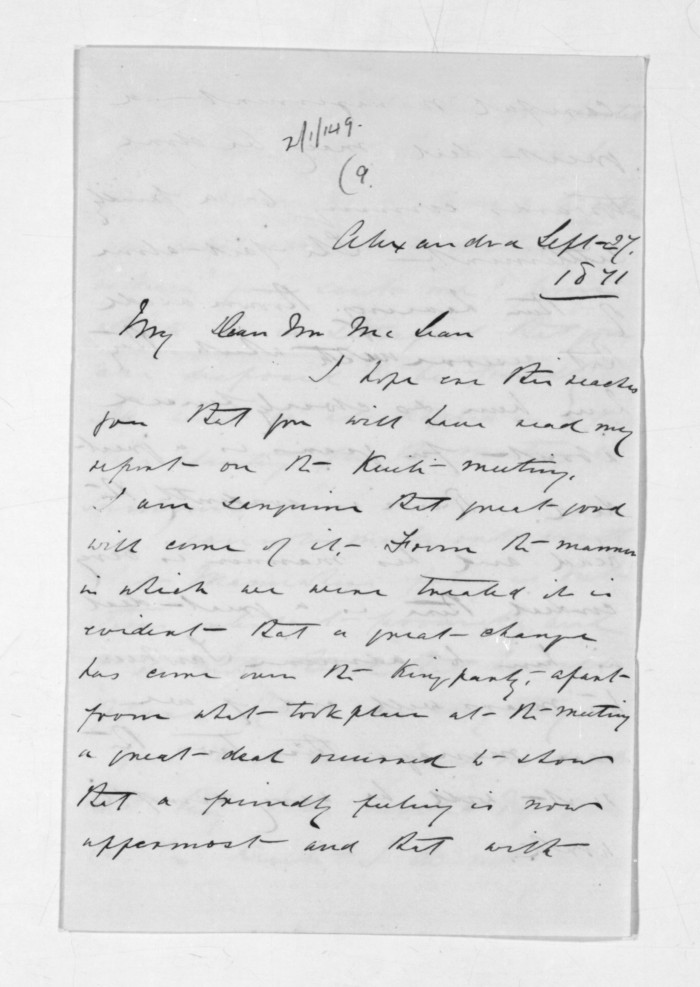 2/1/149.
(9.
Alexandra Sept 27.
1871
My Dear Mr McLean
I hope ere this reaches
you that you will have read my
report on the Kuiti meeting.
I am sanguine that great good
will come of it. From the manner
in which we were treated it is
evident that a great change
has come over the King party, apart
from what took place at the meeting
a great deal occurred to show
that a friendly feeling is now
uppermost and that with